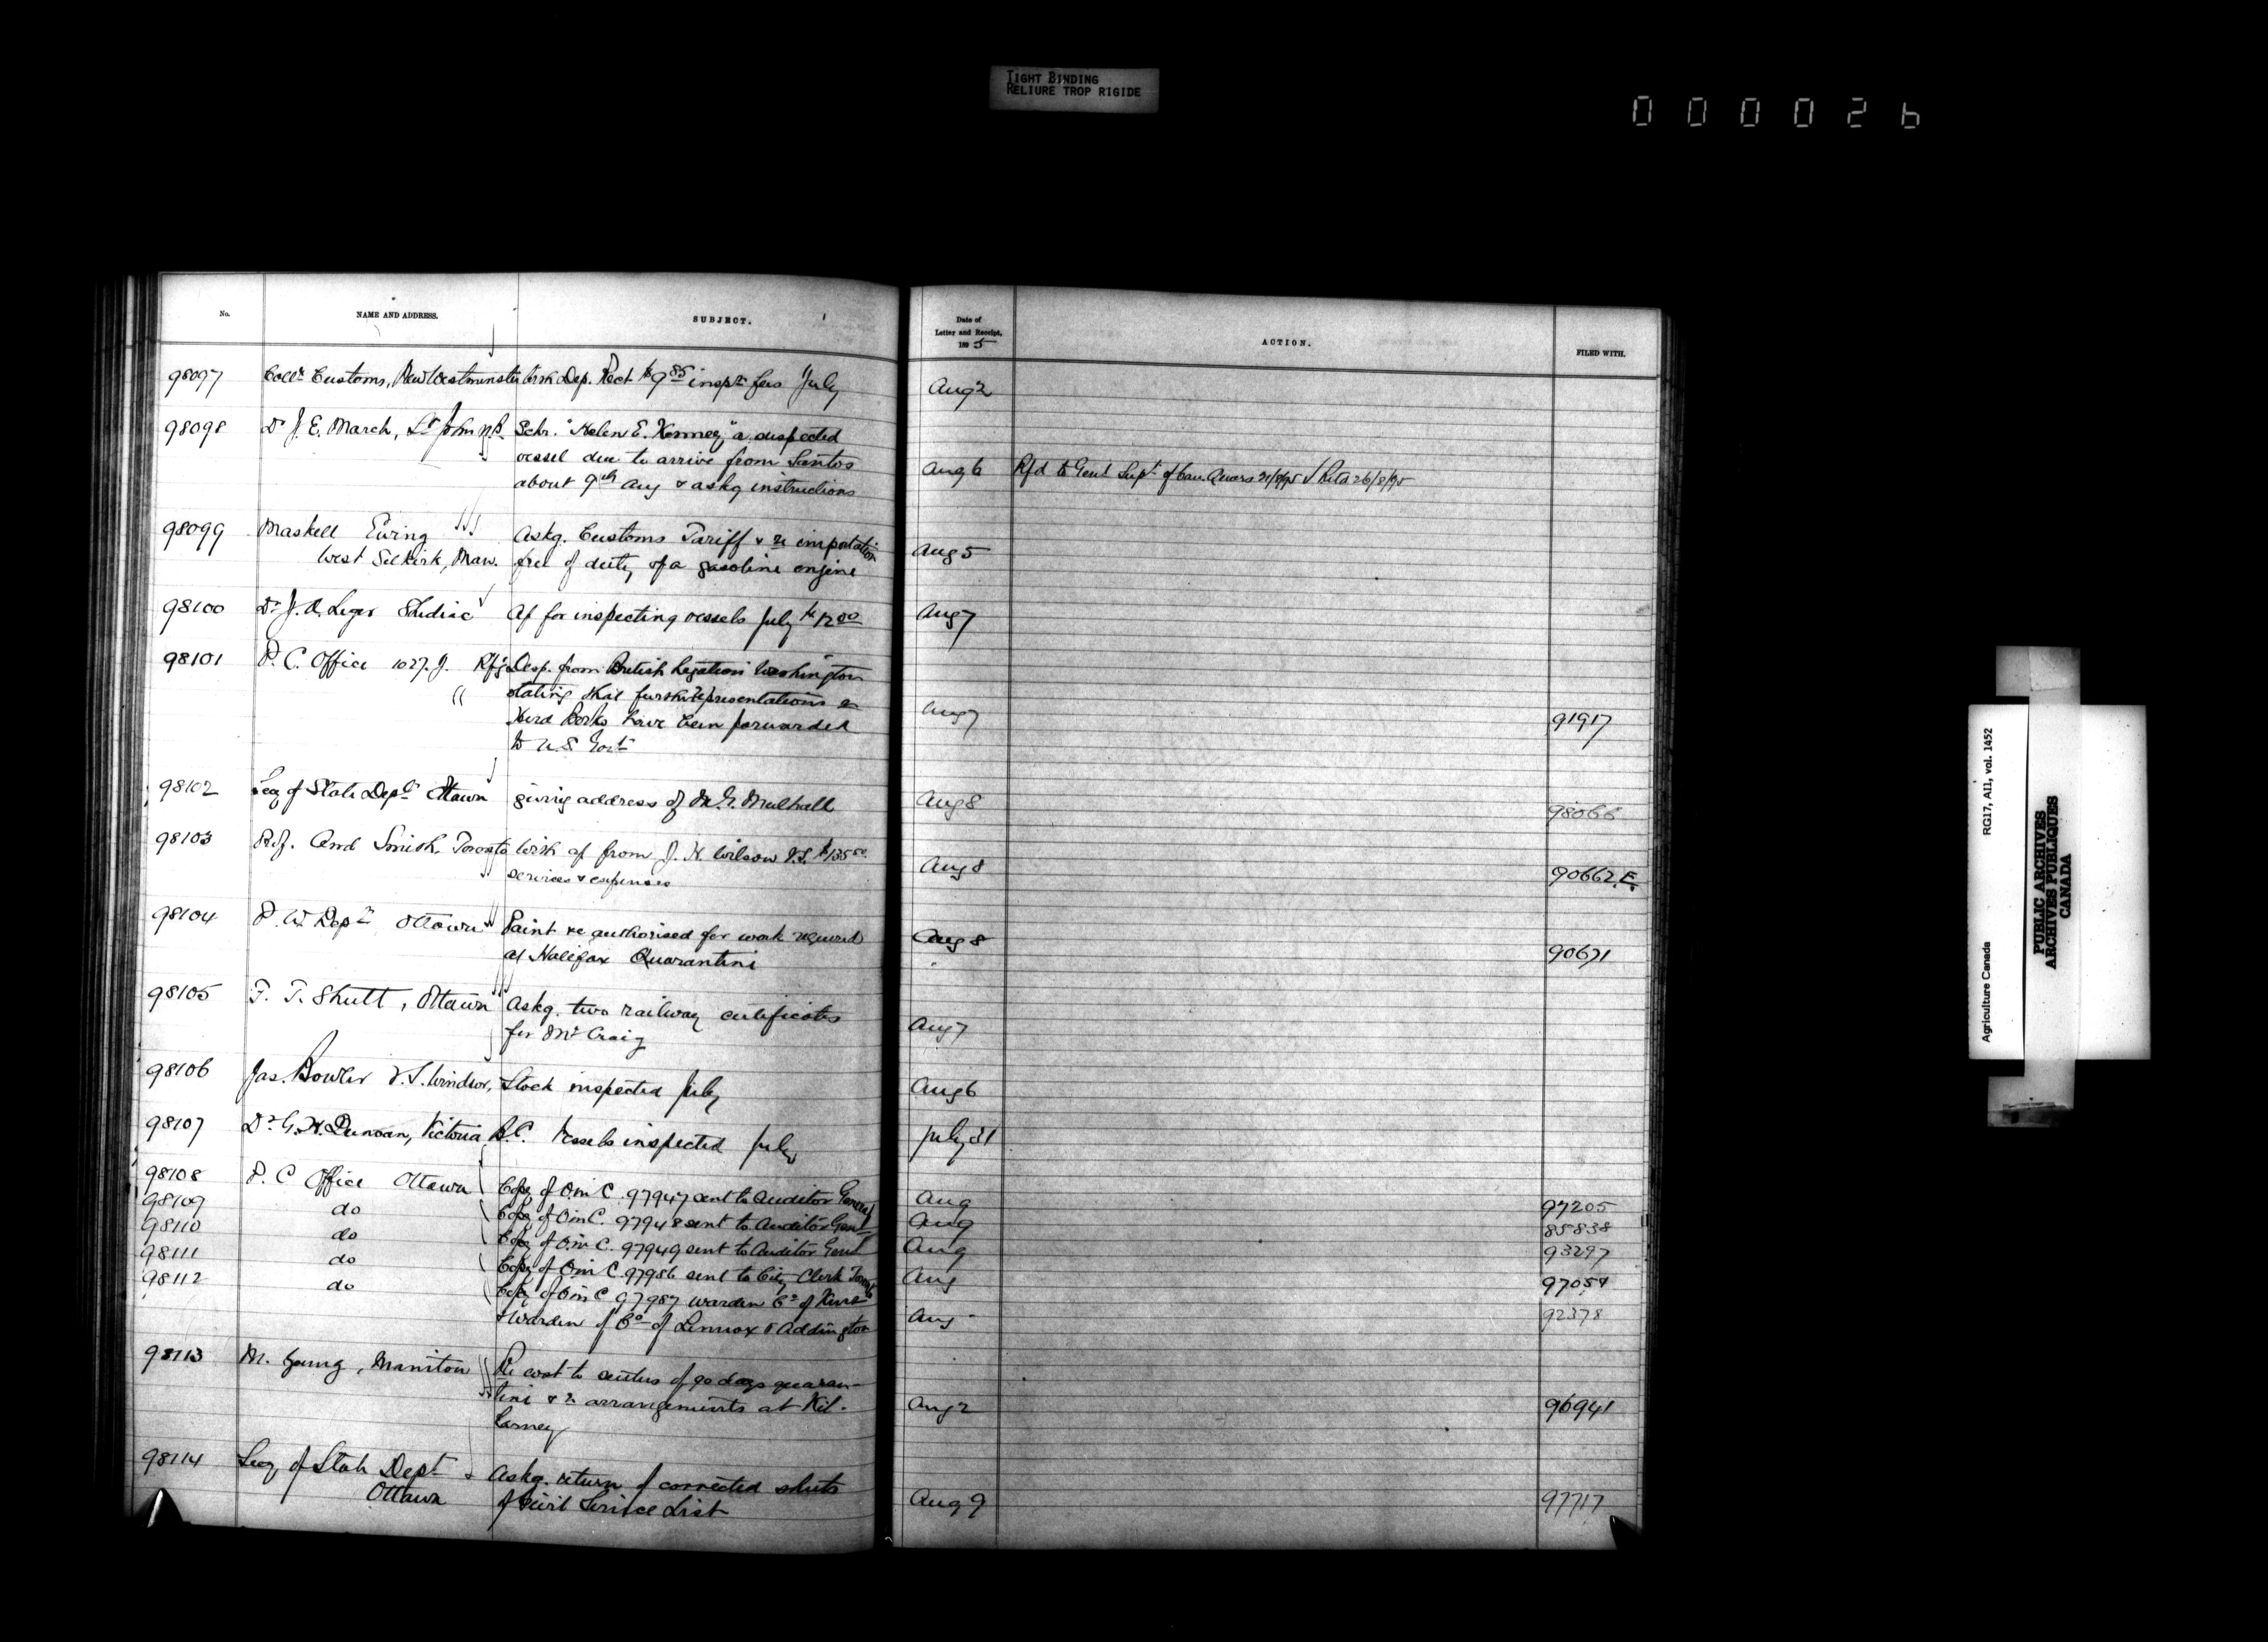 TIGHT BINDING
RELIURE TROP RIGIDE
000026
No. NAME AND ADDRESS. SUBJECT. Date of Letter and Receipt, 1895 ACTION. FILED WITH.
98097 Collr Customs, New Westminster Wth Dep. Rect $9.85 inspn fees July Aug 2
98098 Dr J. E. March, St John N.B. Schr. "Helen E. Kenney," a suspected
vessel due to arrive from Santos
about 9th Aug & askg instructions Aug 6 Rfd to Genl Supt of Can. Quars 21/8/95 Retd 26/8/95
98099 Maskell Ewing Askg. Customs Tariff & re importation
West Selkirk, Man. free of duty of a gasoline engine Aug 5
98100 Dr J. A. Leger Shediac A/c for inspecting vessels July $12.00 Aug 7
98101 P. C. Office 1027. J. Rfg Desp. from British Legation Washington
stating that further representations re
Herd Books have been forwarded Aug 7 91917
to U.S. Govt
98102 Secy of State Dept Ottawa giving address of M. G. Mulhall Aug 8 98066
98103 Prof. And Smith, Toronto With a/c from J. H. Wilson V.S. $135.50
services & expenses Aug 8 90662.E.
98104 P. W. Dept Ottawa Paint &c authorised for work required
at Halifax Quarantine Aug 8 90671
98105 F. T. Shutt, Ottawa Askg. two railway certificates
for Mr Craig Aug 7
98106 Jas. Bowler V.S. Windsor, Stock inspected July Aug 6
98107 Dr G. H. Duncan, Victoria B.C. Vessels inspected July July 31
98108 P. C Office Ottawa Copy of O in C. 97947 sent to Auditor General Aug 97205
98109 do Copy of O in C. 97948 sent to Auditor Genl Aug 85838
98110 do Copy of O in C. 97949 sent to Auditor Genl Aug 93297
98111 do Copy of O in C 97986 sent to City Clerk Toronto Aug 97054
98112 do Copy of O in C 97987 Warden Co of Kent
& Warden of Co of Lennox & Addington Aug 92378
98113 M. Young, Manitou Re cost to settlers of 90 days quaran-
tine & re arrangements at Kil-
larney Aug 2 96941
98114 Secy of State Dept Askg. return of corrected sheets
Ottawa of Civil Service List Aug 9 97717
Agriculture Canada RG17, AII, vol. 1452
PUBLIC ARCHIVES
ARCHIVES PUBLIQUES
CANADA